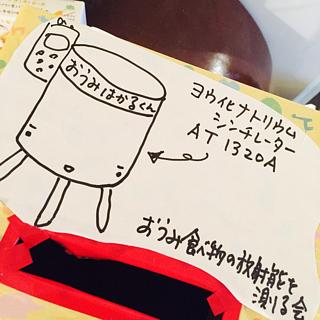 おうみはかるくん
ヨウ化ナトリウム
シンチレーター
AT1320A
おうみ食べ物の放射能を
測る会